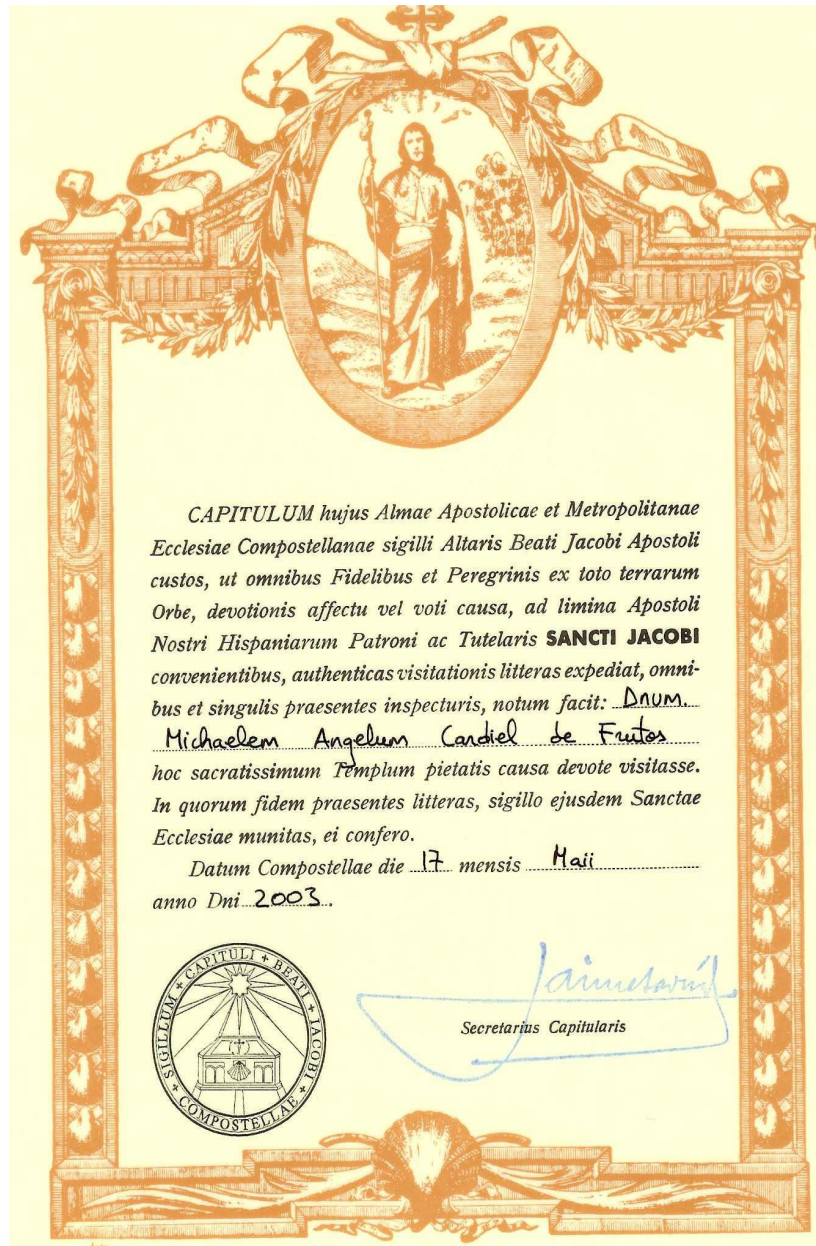 CAPITULUM hujus Almae Apostolicae et Metropolitanae
Ecclesiae Compostellanae sigilli Altaris Beati Jacobi Apostoli
custos, ut omnibus Fidelibus et Peregrinis ex toto terrarum
Orbe, devotionis affectu vel voti causa, ad limina Apostoli
Nostri Hispaniarum Patroni ac Tutelaris SANCTI JACOBI
convenientibus, authenticas visitationis litteras expediat, omni-
bus et singulis praesentes inspecturis, notum facit: Dnum.
Michaelem Angelum Cardiel de Frutos
hoc sacratissimum Templum pietatis causa devote visitasse.
In quorum fidem praesentes litteras, sigillo ejusdem Sanctae
Ecclesiae munitas, ei confero.
Datum Compostellae die 17 mensis Maii
anno Dni 2003.
SIGILLUM + CAPITULI + BEATI + IACOBI + COMPOSTELLAE +
Secretarius Capitularis